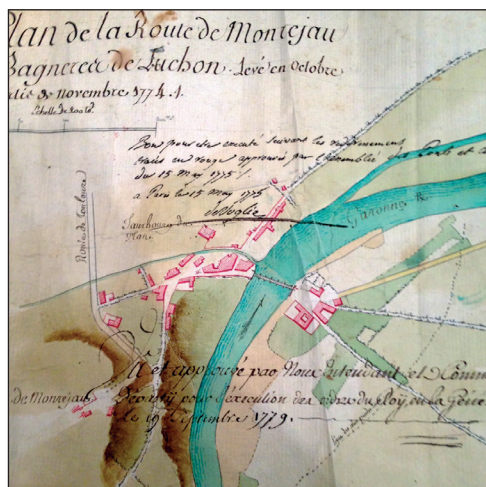 Plan de la Route de Montejau
Bagneres de Luchon. Levé en Octobre
novembre 1774.
Echelle de
Bon pour être executé suivant les redressemens
tracés en rouge approuvés par l'assemblée des Ponts et
du 15 May 1775.
a Paris le 15 May 1775
Route de Toulouse
Fauxbourg du
Plan
Garonne R.
et approuvé par Nous Intendant et Comm
de Montrejau
pour l'execution des ordres du Roy, en la Gene
le 19 Septembre 1779.